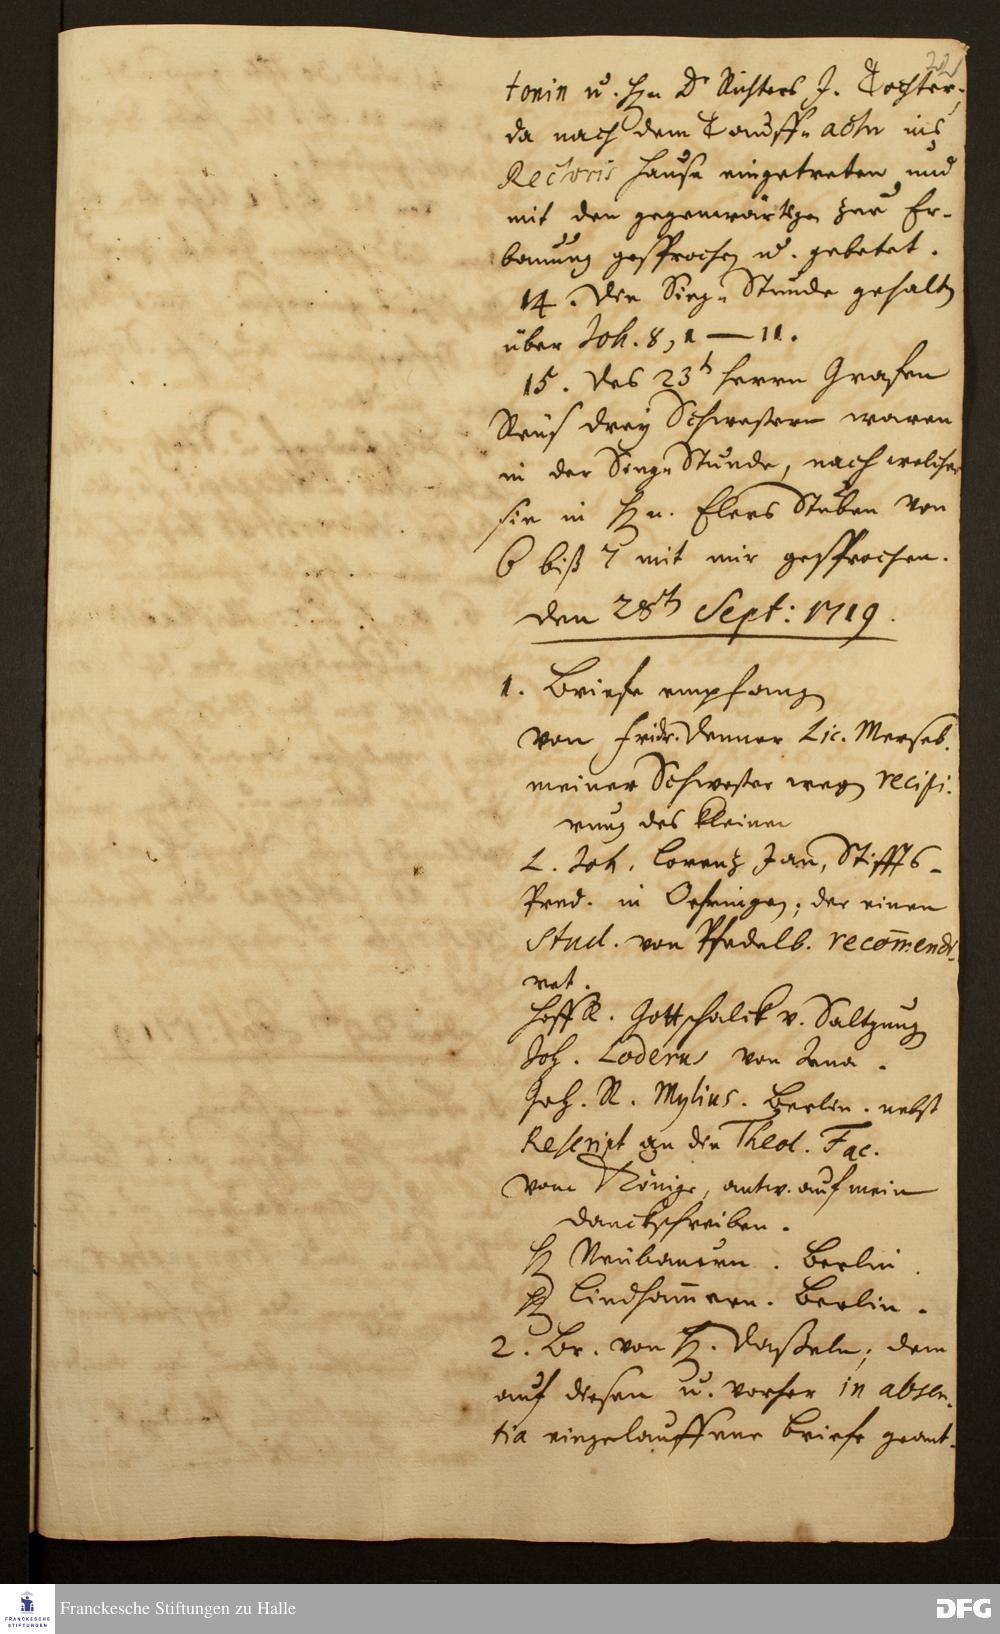 tonin u. Hn D. Richters J. Tochter,
da nach dem Tauff-actu ins
Rectoris Hause eingetreten und
mit den gegenwärtigen zur Er-
bauung gesprochen u. gebetet.
14. Die Sing-Stunde gehalten
über Joh. 8, 1 — 11.
15. Des 23t Herrn Grafen
Reuß drey Schwestern waren
in der Sing-Stunde, nach welcher
sie in Hn. Elers Stuben von
6 biß 7 mit mir gesprochen.
Den 28th Sept: 1719.
1. Briefe empfangen
von Fridr. Denner Lic. Merseb.
meiner Schwester wegen recipi-
rung des kleinen
L. Joh. Lorenz Jan, Stiffts-
Pred. in Oehringen; der einen
Stud. von Pfedelb. recom̄endi-
ret.
Hoff R. Gottschalck v. Saltzung
Joh. Loderus von Jena.
Geh. R. Mylius. Berlin. nebst
Rescript an die Theol. Fac.
vom Könige, antw. auf mein
Danckschreiben.
H Neubauern. Berlin.
H Lindham̄ern. Berlin.
2. Br. von H. Daßeln; dem
auf diesen u. vorher in absen-
tia eingelauffene Briefe geant-
Franckesche Stiftungen zu Halle
FRANCKESCHE
STIFTUNGEN
DFG